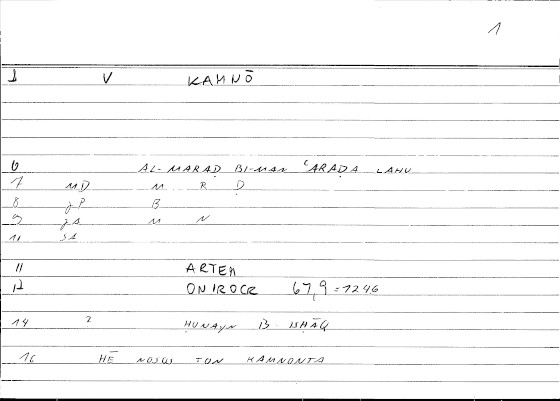 1
1 V KAMNŌ
6 AL-MARAḌ BI-MAN ʿARAḌA LAHU
7 MD M R Ḍ
8 JP B
9 JA M N
10 SA
11 ARTEM
12 ONIROCR 67,9 = 1246
14 2 ḤUNAYN B. ISḤĀQ
16 HĒ NOSOS TON KAMNONTA